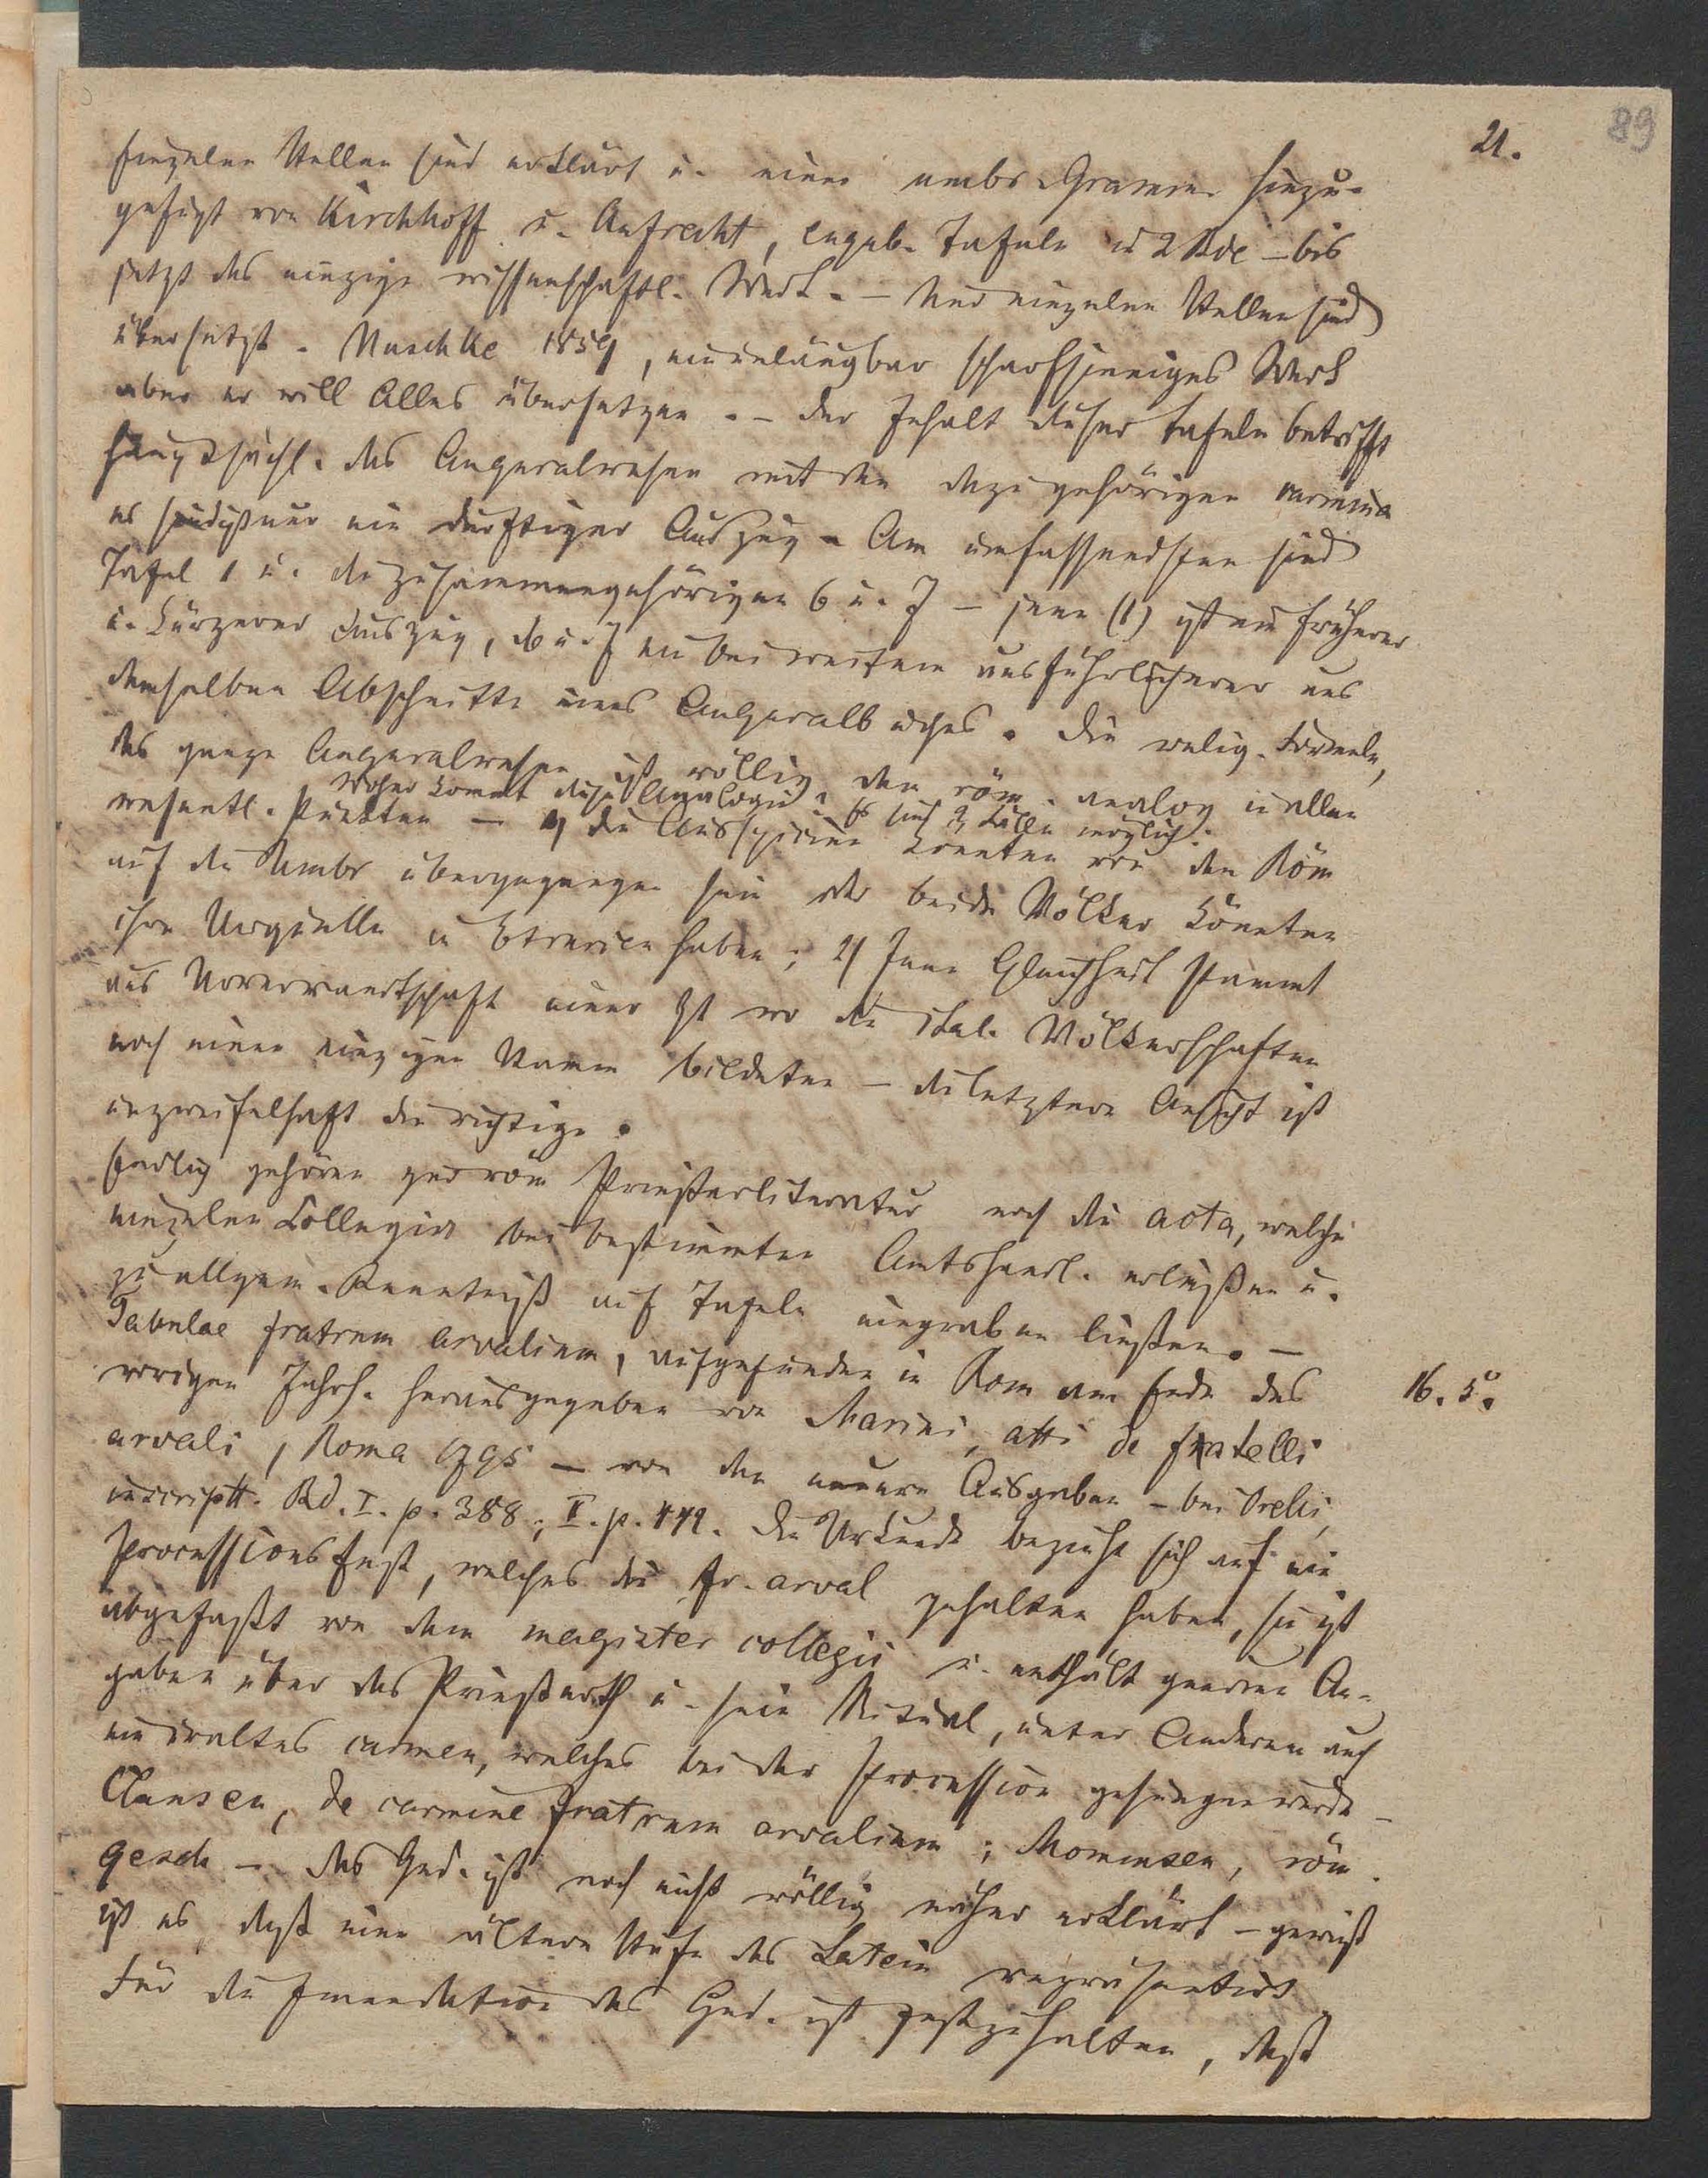 89
21.
Einzelne Stellen sind erklärt u. eine umbr. Gramm. hinzu-
gefügt von Kirchhoff u. Aufrecht, eugub. Tafeln in 2 Bde – bis
jetzt das einzige wissenschaftl. Werk. – Nur einzelne Stellen sind
übersetzt. Huschke 1859, ein unläugbar scharfsinniges Werk
aber er will Alles übersetzen. – Der Inhalt dieser Tafeln betrifft
hauptsächl. das Auguralwesen mit den dazu gehörigen carmina
es sind nur ein dürftiger Auszug. Am umfassendsten sind
Tafel 1 u. die zusammengehörigen 6 u. 7 – jene (1) ist ein früherer
u. kürzerer Auszug, 6 u. 7 ein bei weitem ausführlicherer aus
demselben Abschnitte eines Auguralbuches. Die relig. Formeln,
das ganze Auguralwesen ist völlig dem röm. analog in allen
Woher kommt diese Analogie? Es sind 2 Fälle möglich.
wesentl. Punkten – 1) die Auspicien konnten von den Röm
auf die Umbr übergegangen sein oder beide Völker könnten
ihre Urquelle in Etrurien haben; 2) Jene Gleichheit stammt
aus Urverwandtschaft einer Zt wo die ital. Völkerschaften
noch einen einzigen Stamm bildeten – die letztere Ansicht ist
unzweifelhaft die richtige.
Endlich gehören zur röm Priesterliteratur noch die acta, welche
einzelne Collegien bei bestimmten Amtshandl. erließen u.
zu allgem. Kenntniß auf Tafeln eingraben ließen. –
Tabulae fratrum arvalium, aufgefunden in Rom am Ende des
vorigen Jahrh. herausgegeben von Marini, atti de fratelli
16. 5.
arvali, Roma 1795 – von den neuern Ausgaben – bei Orelli,
inscriptt. Bd. I. p. 388; II. p. 449. Die Urkunde bezieht sich auf ein
Processionsfest, welches die fr. arval gehalten haben, sie ist
abgefaßt von dem magister collegii u. enthält genaue An-
gaben über das Priesterth u. sein Ritual, unter Anderem auch
ein uraltes carmen, welches bei der Procession gesungen wurde –
Clausen, de carmine fratrum arvalium; Mommsen, röm.
Gesch – das Ged. ist noch nicht völlig sicher erklärt – gewiß
ist es, daß eine ältere Stufe des Latein repräsentirt
Für die Emendation des Ged. ist festzuhalten, daß